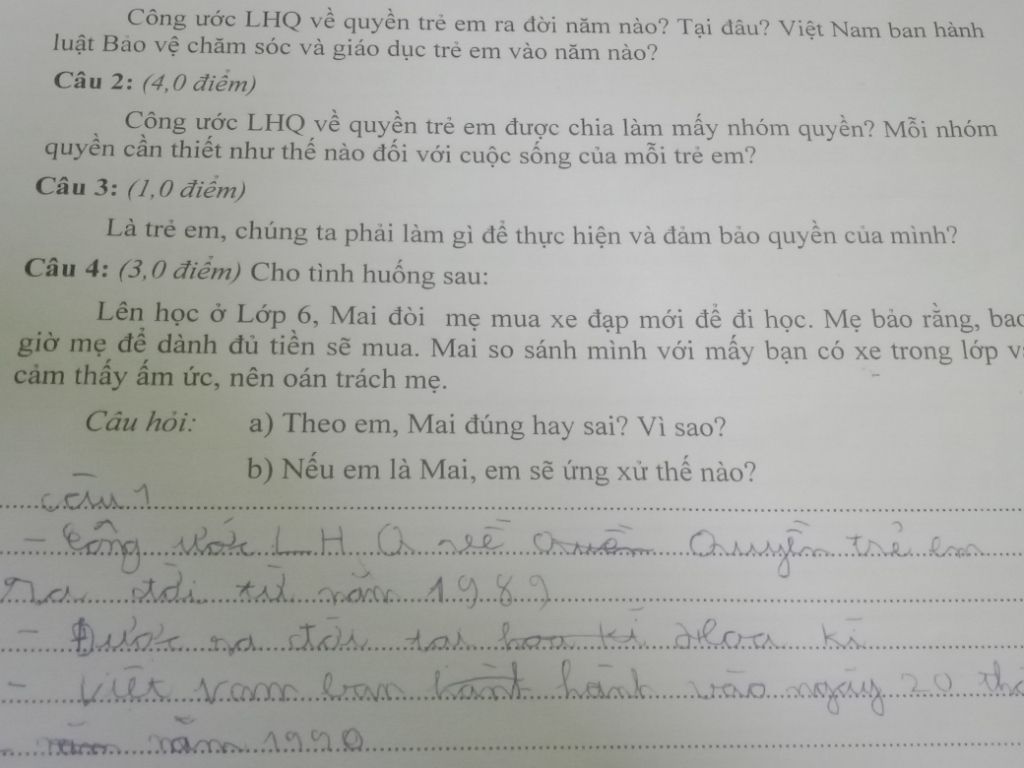 Công ước LHQ về quyền trẻ em ra đời năm nào? Tại đâu? Việt Nam ban hành
luật Bảo vệ chăm sóc và giáo dục trẻ em vào năm nào?
Câu 2: (4,0 điểm)
Công ước LHQ về quyền trẻ em được chia làm mấy nhóm quyền? Mỗi nhóm
quyền cần thiết như thế nào đối với cuộc sống của mỗi trẻ em?
Câu 3: (1,0 điểm)
Là trẻ em, chúng ta phải làm gì để thực hiện và đảm bảo quyền của mình?
Câu 4: (3,0 điểm) Cho tình huống sau:
Lên học ở Lớp 6, Mai đòi mẹ mua xe đạp mới để đi học. Mẹ bảo rằng, bao
giờ mẹ để dành đủ tiền sẽ mua. Mai so sánh mình với mấy bạn có xe trong lớp
cảm thấy ấm ức, nên oán trách mẹ.
Câu hỏi: a) Theo em, Mai đúng hay sai? Vì sao?
b) Nếu em là Mai, em sẽ ứng xử thế nào?
câu 1
- Công ước LHQ về Quyền trẻ em
ra đời từ năm 1989
- Được ra đời tại Hoa kì
- Việt nam ban hành vào ngày 20
năm 1990